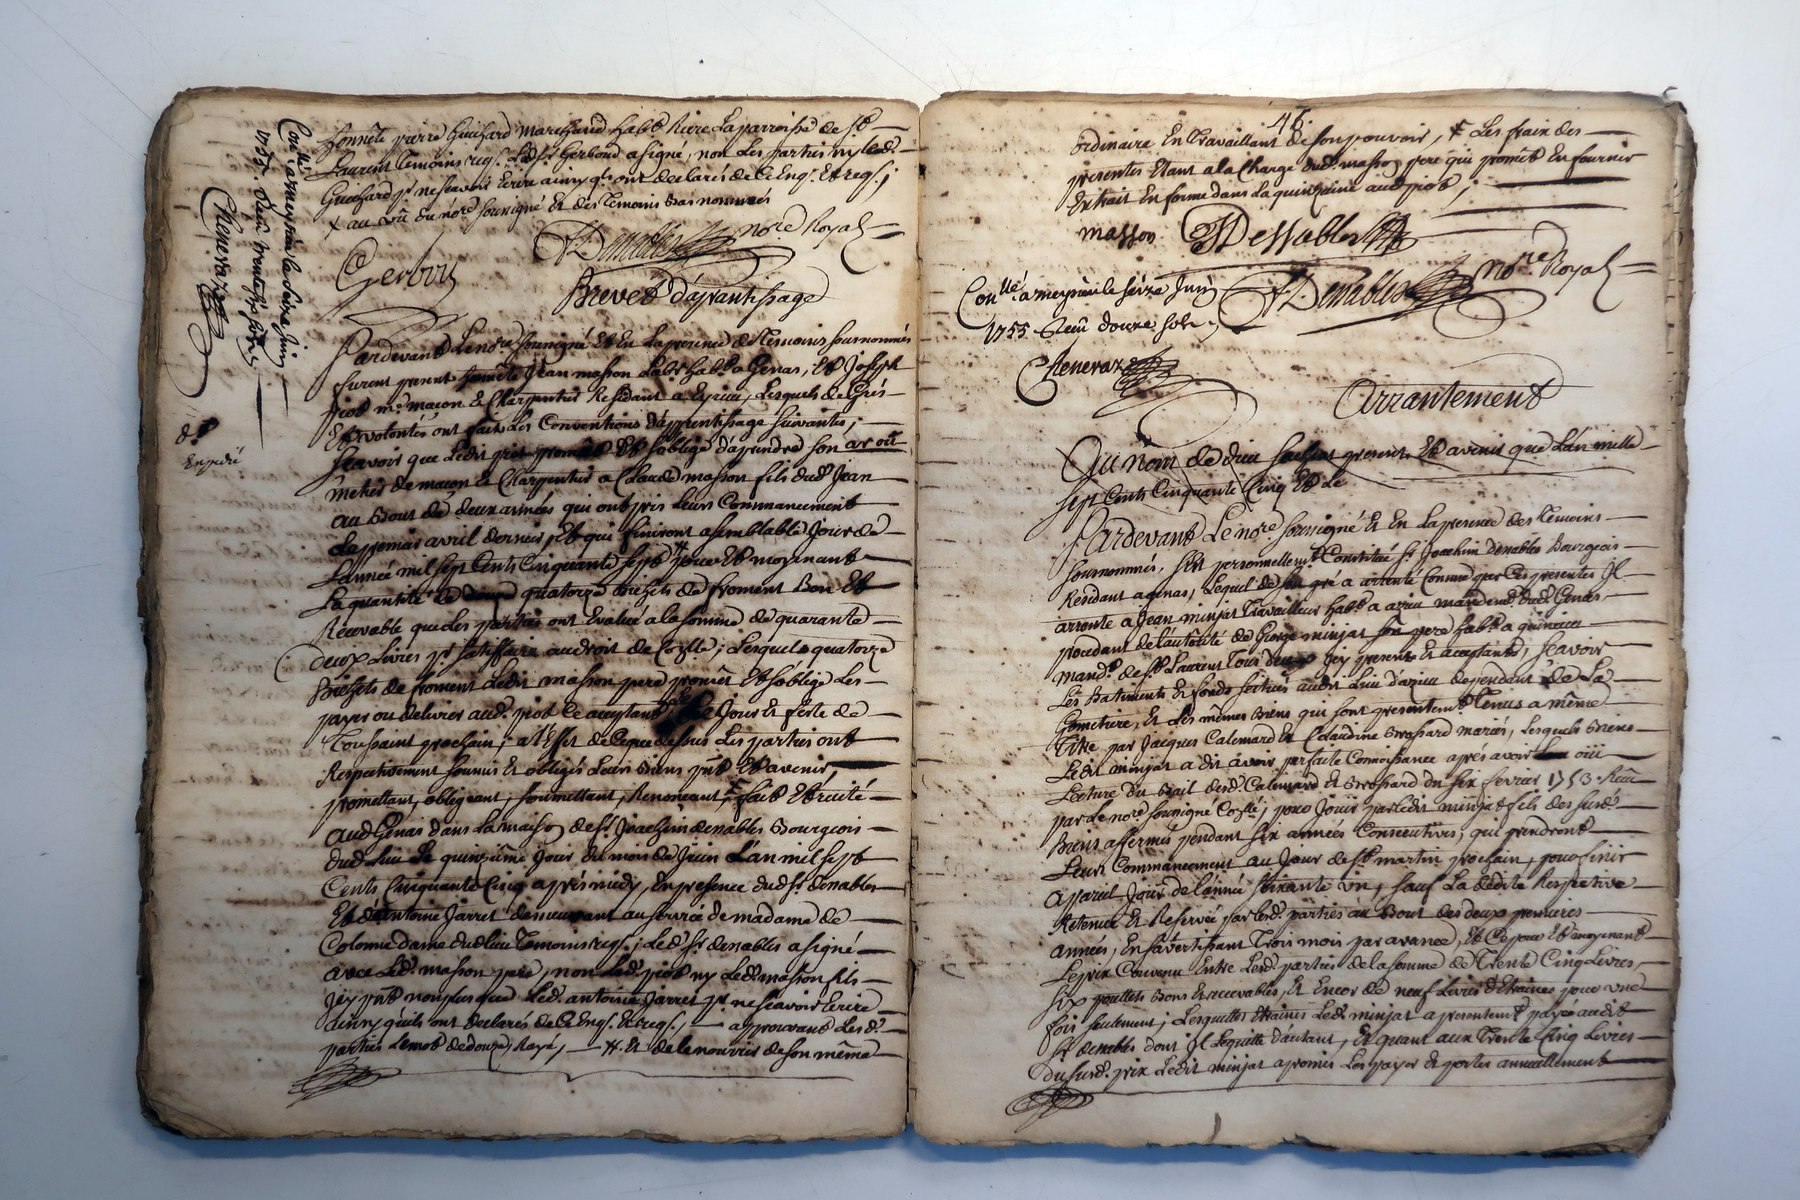 honnête pierre Guichard marchand habt. Rière la parroisse de St.
Laurent temoins req. Led. Sr Gerboud a signé, non les parties ny led.
Guichard pr. ne scavoir Ecrire ainsy qls. ont declarés de Ce Enq. Et req. ;
+ au vû du nore. soussigné Et des temoins bas nommés
Denables nore. Royal
Gerboud
Brevet d'aprantissage
Pardevant le nore. soussigné Et En la presence des temoins sousnommés
furent present honnête Jean masson Labr habt. a Genas, Et Joseph
piot me. maçon Et Charpentier Residant a Azieu, Lesquels de Grés
Et volontés ont fait les Conventions d'apprentissage suivantes ;
Scavoir que ledit piot promet Et soblige d'aprendre son art ou
metier de maçon Et Charpentier a Claude masson fils dud. Jean
au bout de deux années qui ont pris leurs Commancement
le premier avril dernier, Et qui finiront a semblable Jour de
Lannée mil sept Cents Cinquante sept # pour Et moyenant
la quantité de quatorze bichets de froment bon Et
Recevable que les parties ont Evalué a la somme de quarante
deux Livres pr. satisffaire au droit de Conlle ; Lesquels quatorze
Bichets de froment Ledit masson pere promet Et soblige les
payer ou delivrer aud. piot Ce acceptant Jour Et feste de
Toussaint prochain ; a l'Effet de Ce que dessus les parties ont
Respectivement soumis Et obligés leurs biens pnt Et avenir,
promettant, obligeant, soumettant, Renonceant, fait Et recité
aud Genas dans la maison de Sr. Joachim denables Bourgeois
dud. lieu le quinzième Jour du mois de Juin L'an mil sept
Cents Cinquante Cinq après midy, En presence dud. Sr. denables
Et d'Antoine Jarret demeurant au service de madame de
Colonne dame dud. lieu temoins req. ; led. Sr denables a signé
avec Led. masson pere, non led. piot ny led. masson fils
Icy pnt non plus que led. antoine Jarret pr. ne scavoir Ecrire
ainsy quils ont declarés de Ce Enq. Et req. ; — approuvant lesd.
parties le mot de douze, Rayé, — # Et de le nourrir de son même
Conllé. a meyzieu le seize juin
1755. Reçu
Chenevaz
dt.
Expedié
46.
ordinaire En travaillant de son pouvoir, + Les frais des
presentes Etant a la Charge dud. masson pere qui promet En fournir
Extrait En forme dans la quinzaine aud. piot ;
masson Denables
Denables nore. Royal
Conllé. a meyzieu le seize Juin
1755. Reçu douze sols.
Chenevaz
Arrantement
Au nom de dieu soit a present Et avenir que L'an mille
sept Cents Cinquante Cinq Et le
Pardevant Le nore. soussigné Et En la presence des temoins
sousnommés, s'Est personnellemt. Constitué Sr. Joachim denables Bourgeois
Residant a genas, Lequel de son gré a arrenté Comme par Ces presentes Il
arrente a Jean minjat travailleur habt. a azieu mandemt. dud. Genas
procedant de l'autorité de George minjat son pere habt. a
mandt. de St. Laurent tous deux Icy present Et acceptants, Scavoir
Les Batiments Et fonds scitués audit Lieu d'azieu dependant de La
Et les mêmes biens qui sont presentement tenus a même
titre par Jacques Calemard Et Claudine Brossard mariés, Lesquels Biens
Ledit minjat a dit avoir parfaite Connoissance après avoir oüi
Lecture du Bail desd. Calemard Et Brossard du six fevrier 1753. Recû
par le nore. soussigné Conllé ; pour Jouir par ledit minjat fils des susd.
Biens affermés pendant six années Consecutives, qui prendront
Leurs Commancement au Jour de St. martin prochain, pour finir
a pareil Jour de l'année soixante un, sauf la dédite Respective
Retenue Et Reservée par lesd. parties au Bout des deux premieres
années, En savertissant trois mois par avance, Et Ce pour Et moyenant
Le prix Convenu Entre lesd. parties de la somme de trente Cinq Livres,
six poullets Bons Et recevables, Et Encor de neuf Livres d'Etraines pour une
fois seulement ; Lesquelles Etraines Led. minjat a presentement payé audit
Sr. denables dont Il le quitte d'autant, Et quant aux trente Cinq Livres
du susd. prix Ledit minjat a promis les payer Et porter annuellement